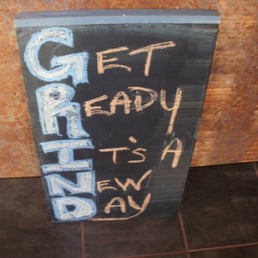 GET
READY
IT'S A
NEW
DAY